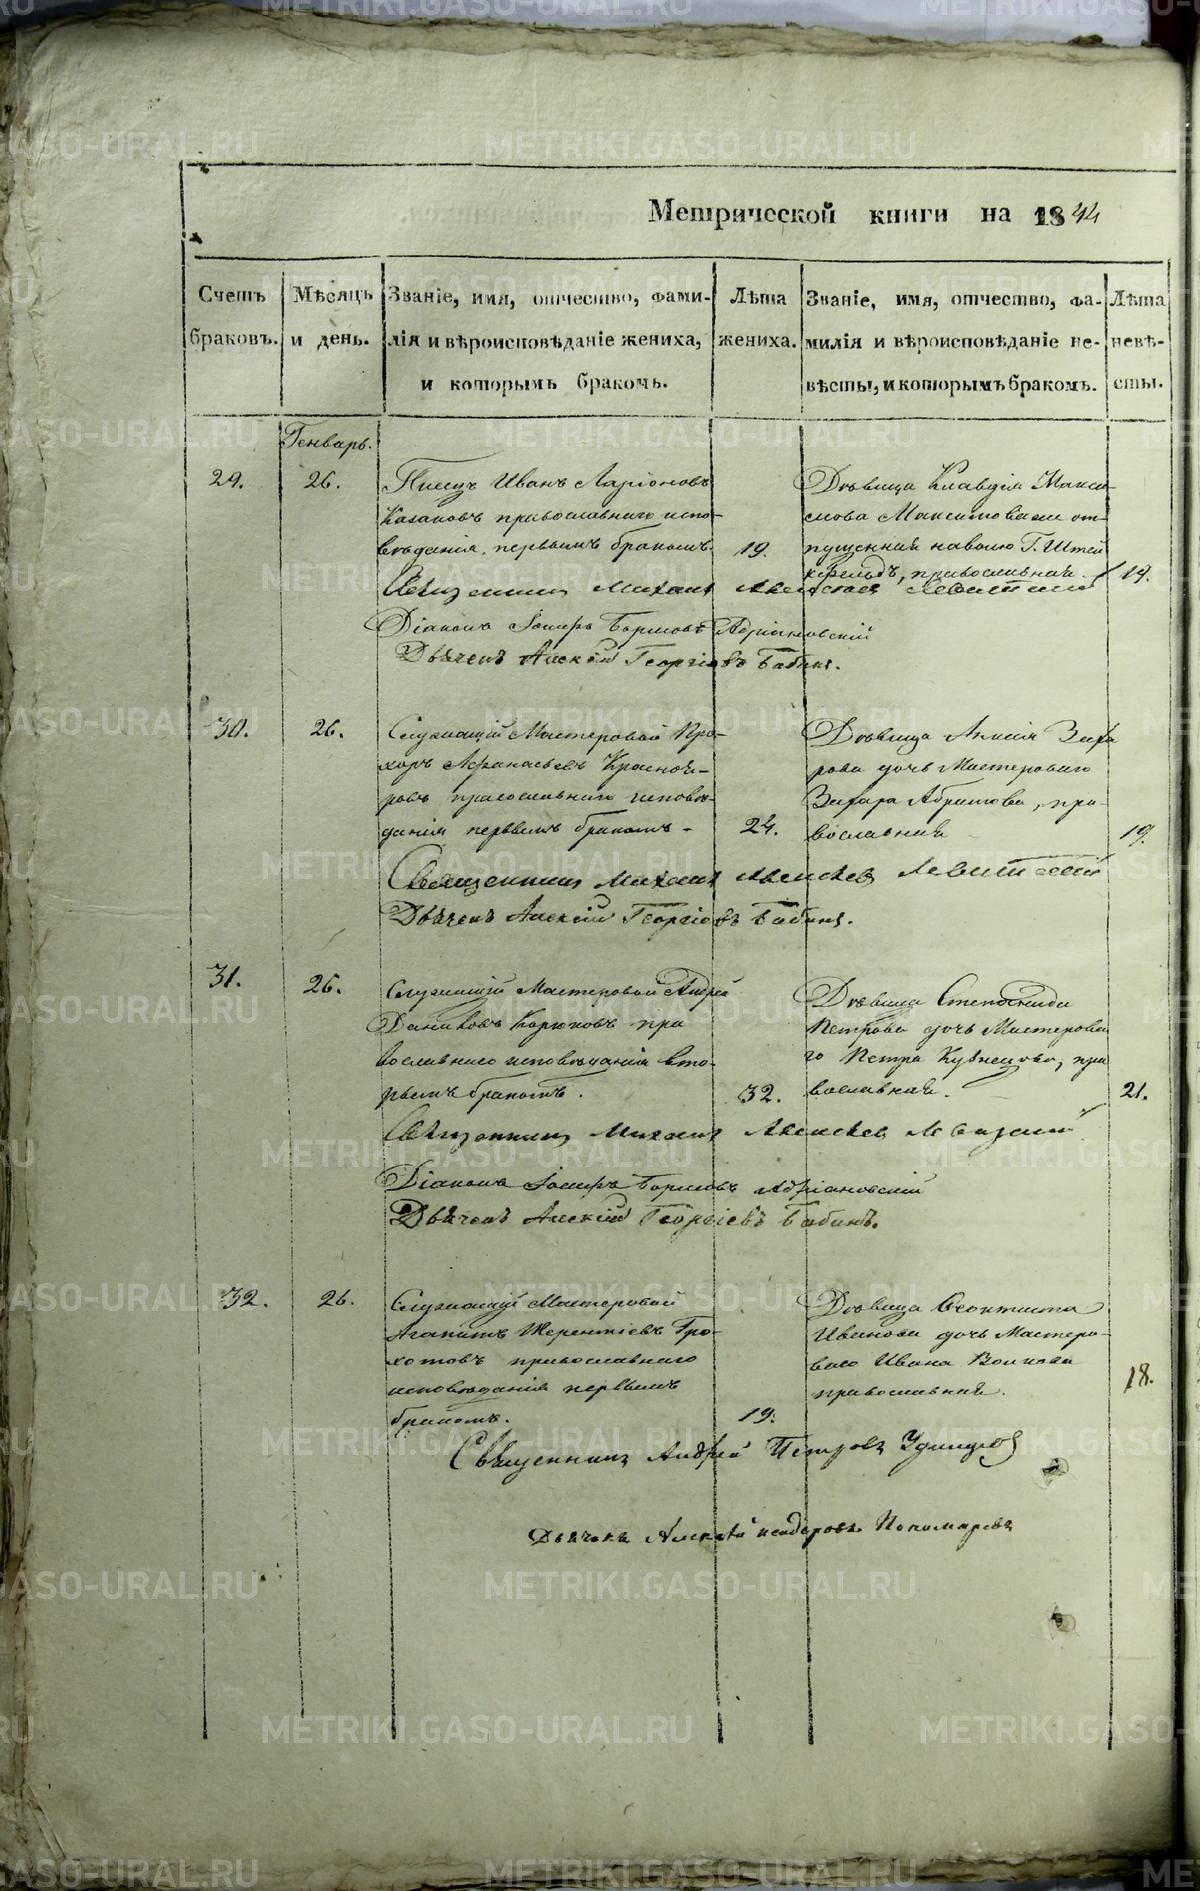 Метрической книги на 1844
Счетъ браковъ.
Мѣсяцъ и день.
Званіе, имя, отчество, фами-
лія и вѣроисповѣданіе жениха,
и которымъ бракомъ.
Лѣта жениха.
Званіе, имя, отчество, фа-
милія и вѣроисповѣданіе не-
вѣсты, и которымъ бракомъ.
Лѣта невѣ-
сты.
Генварь.
29.
26.
Писецъ Иванъ Ларіоновъ
Казаковъ православнаго испо-
вѣданія, первымъ бракомъ.
19.
Дѣвица Клавдія Макси-
мова Максимова от-
пущенная наволю Г.
православная.
19.
Священникъ Михаил Алексѣев Левитскій
Діаконъ Іосифъ Борисовъ Адріановскій
Дьячекъ Алексій Георгіевъ Бабинъ.
30.
26.
Служащій Мастеровой Про-
хоръ Афанасьевъ
православнаго исповѣ-
данія первымъ бракомъ
24.
Дѣвица Захà
рова дочь Мастероваго
Захара Абрамова, пра-
вославная
19.
Священникъ Михаил Алексѣев Левитскій
Дьячекъ Алексій Георгіевъ Бабинъ.
31.
26.
Служащій Мастеровой Андрей
Даниловъ Корюковъ пра
вославнаго исповѣданія вто-
рымъ бракомъ.
32.
Дѣвица Степанида
Петрова дочь Мастерова
го Петра Кузнецова, пра
вославная.
21.
Священникъ Михаил Алексѣев Левитскій
Діаконъ Іосифъ Борисовъ Адріановскій
Дьячекъ Алексій Георгіевъ Бабинъ.
32.
26.
Служащій Мастеровой
Агапитъ Терентіевъ Гро-
хотовъ православнаго
исповѣданія первымъ
бракомъ.
19.
Дѣвица Феоктиста
Иванова дочь Мастеро-
ваго Ивана Волкова
православная.
18.
Священникъ Андрей Петровъ Удинцов
Дьячекъ Алексѣй Исидоровъ Пономаревъ
METRIKI.GASO-URAL.RU